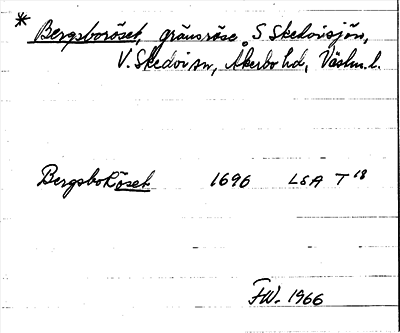 * Bergsboröset, gränsröse S Skedvisjön,
V. Skedvi sn, Åkerbo hd, Västm. l.
Bergsboröset 1696 LSA T 18
FW. 1966